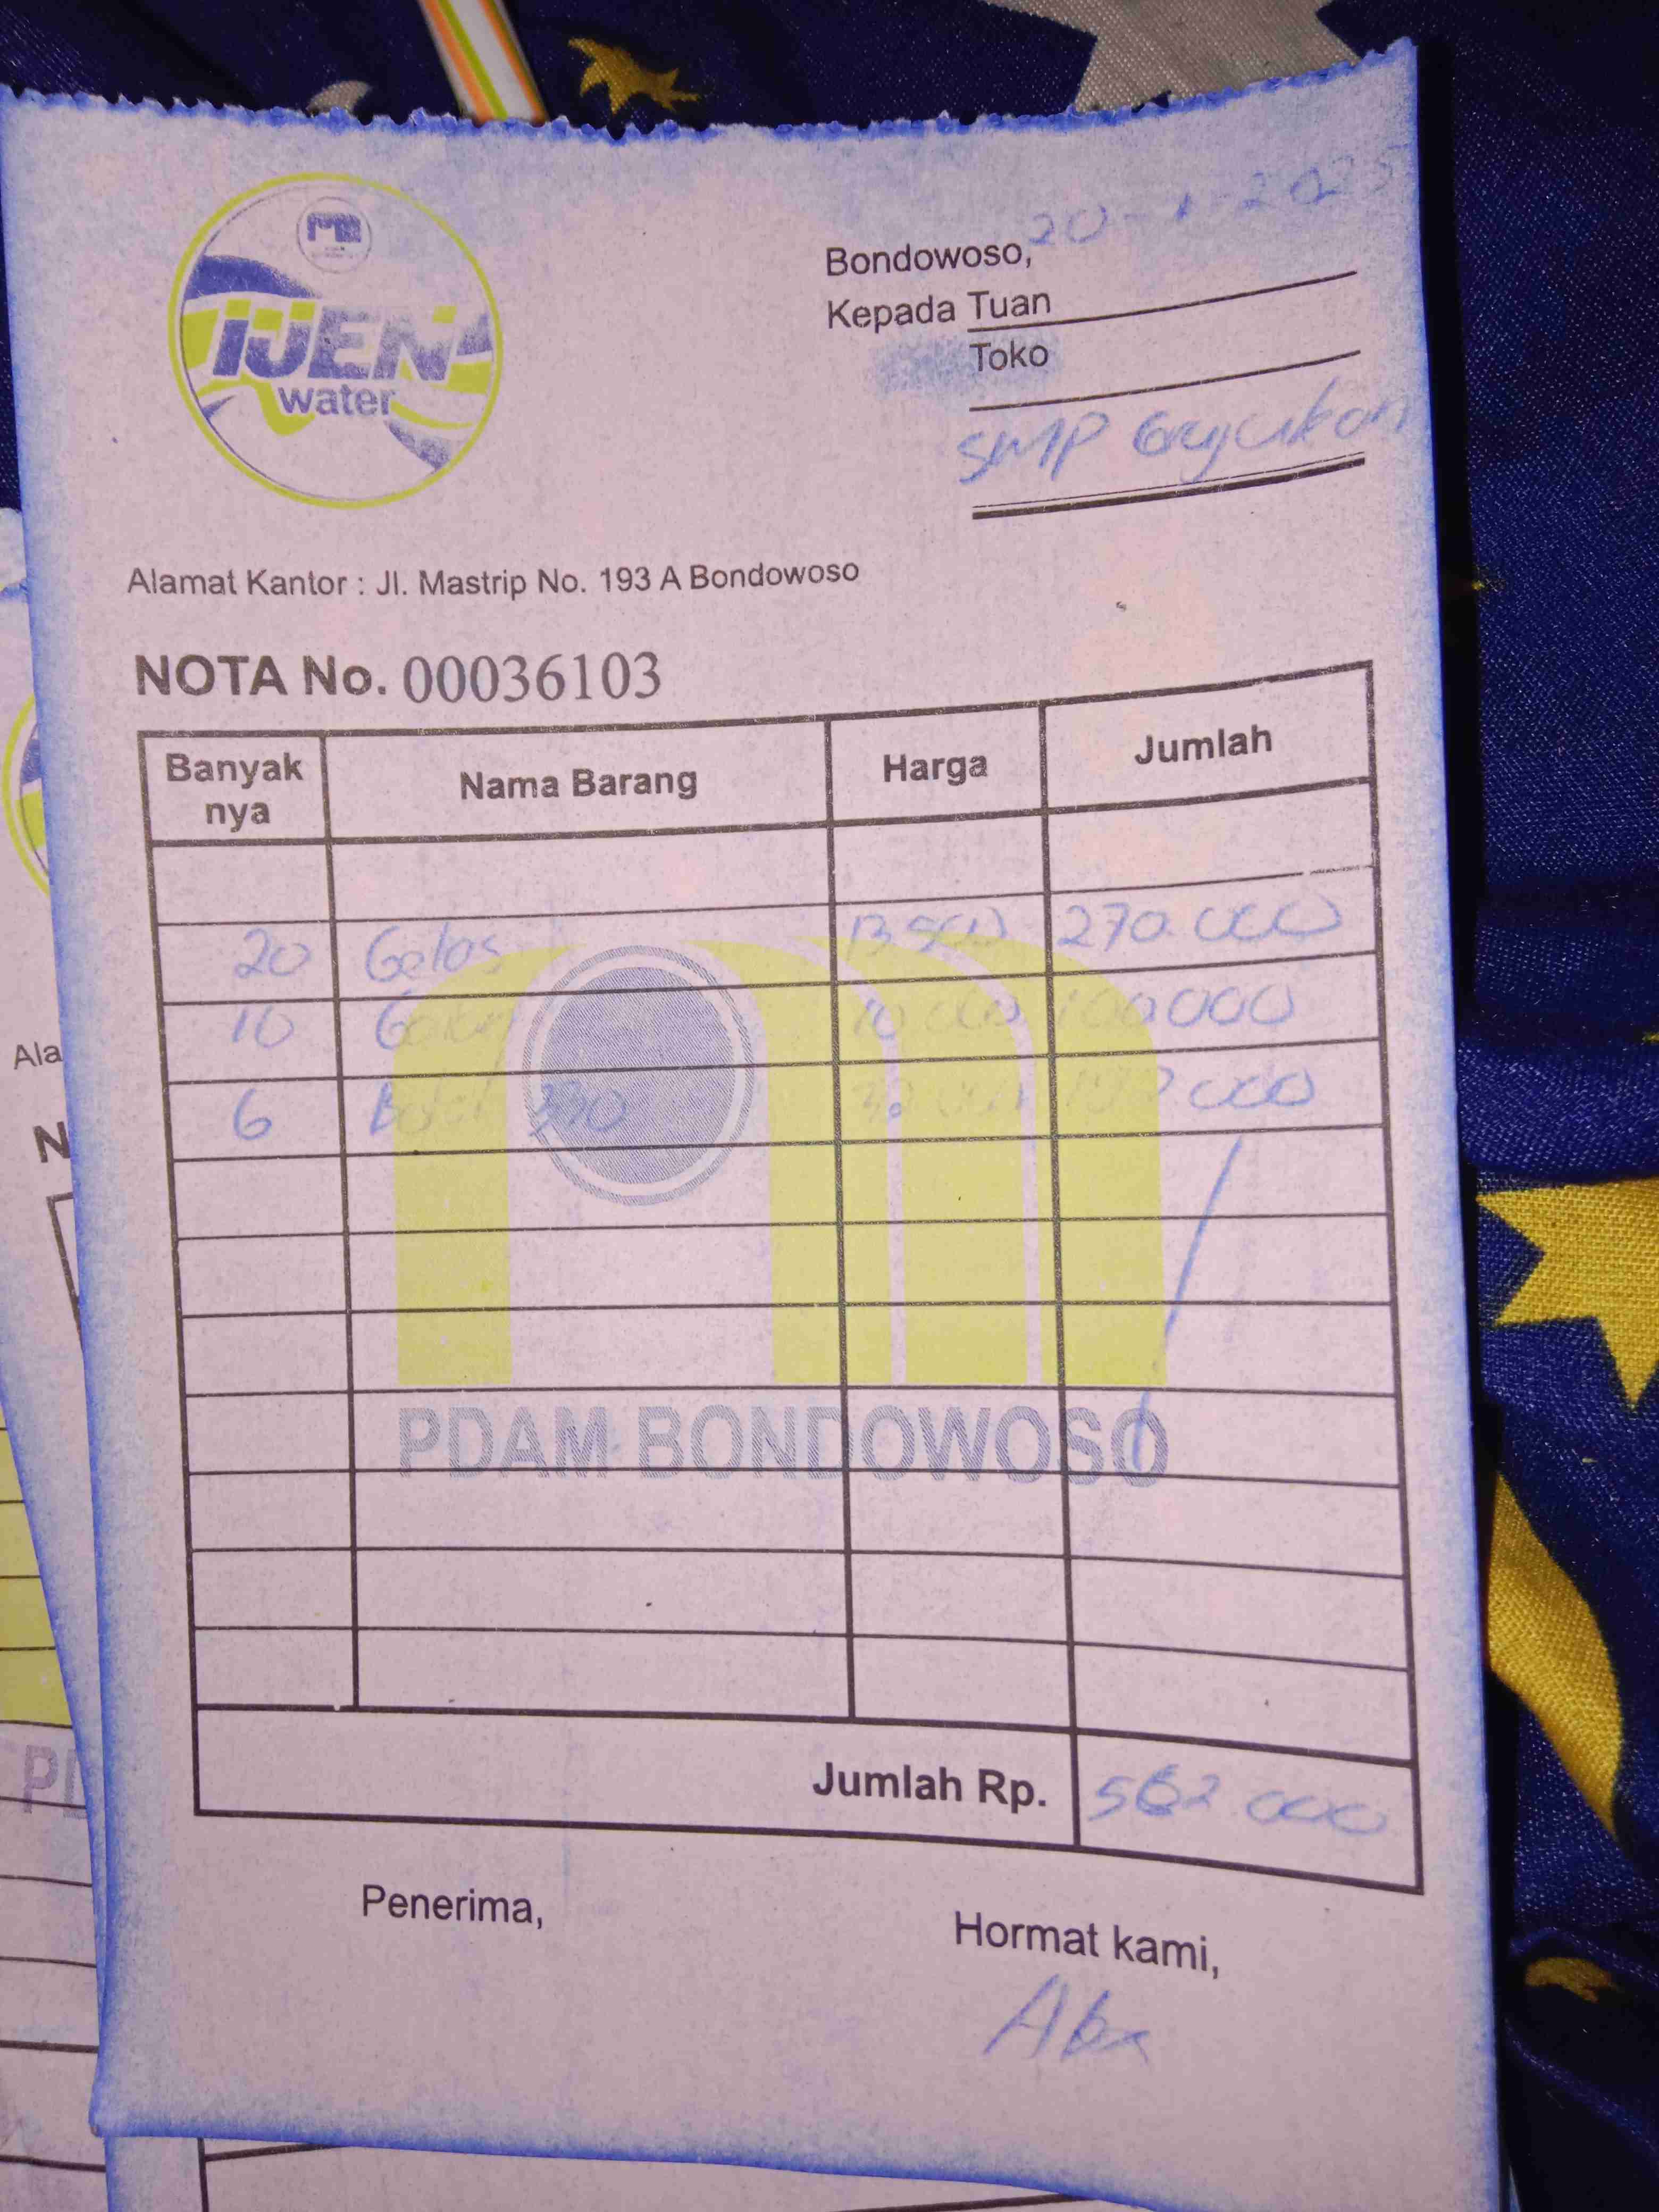 IJEN
water
Bondowoso, 20-1-2025
Kepada Tuan
Toko
SMP
Alamat Kantor : Jl. Mastrip No. 193 A Bondowoso
NOTA No. 00036103
Banyak nya Nama Barang Harga Jumlah
20 Gelas 13.500 270.000
10 Galon 10.000 100.000
6 Botol 330 32.000 192.000
PDAM BONDOWOSO
Jumlah Rp. 562.000
Penerima,
Hormat kami,
Ala
N
PD